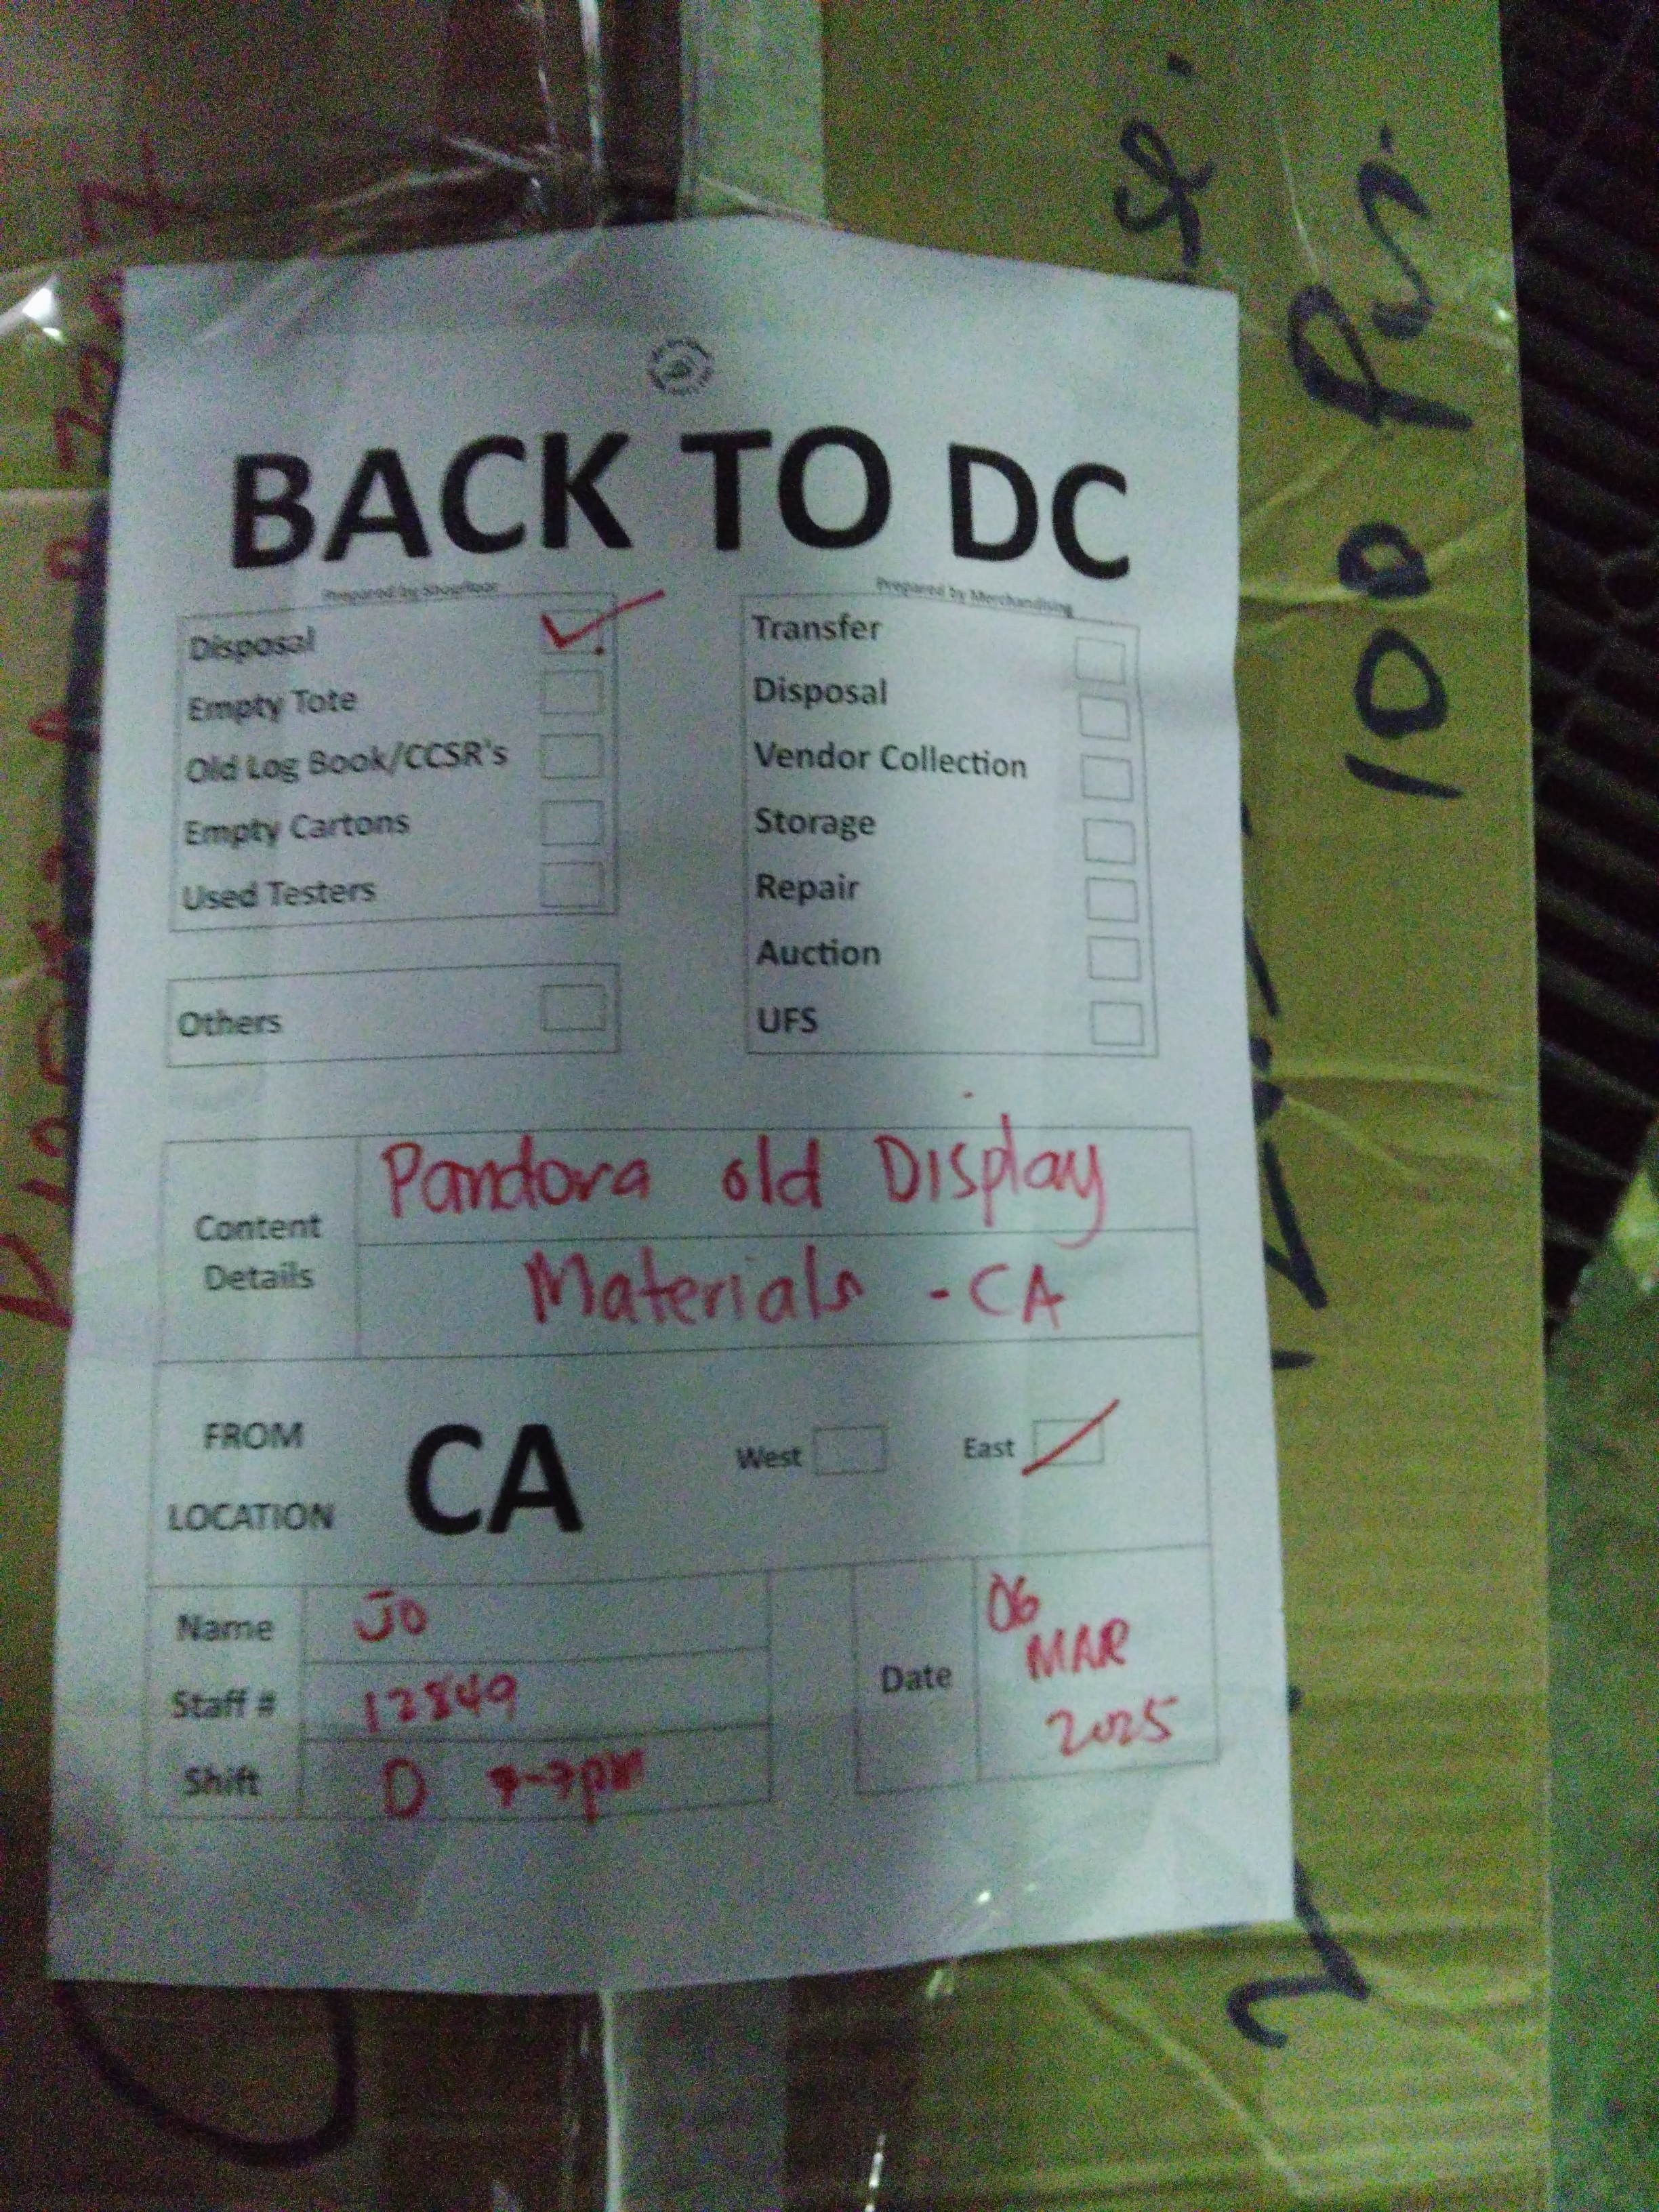 BACK TO DC
Prepared by Shopfloor
Disposal
Empty Tote
Old Log Book/CCSR's
Empty Cartons
Used Testers
Others
Prepared by Merchandising
Transfer
Disposal
Vendor Collection
Storage
Repair
Auction
UFS
Content Details
Pandora old Display
Materials - CA
FROM LOCATION
CA
West
East
Name
Jo
Staff #
12849
Shift
D 7-7pm
Date
06
MAR
2025
100